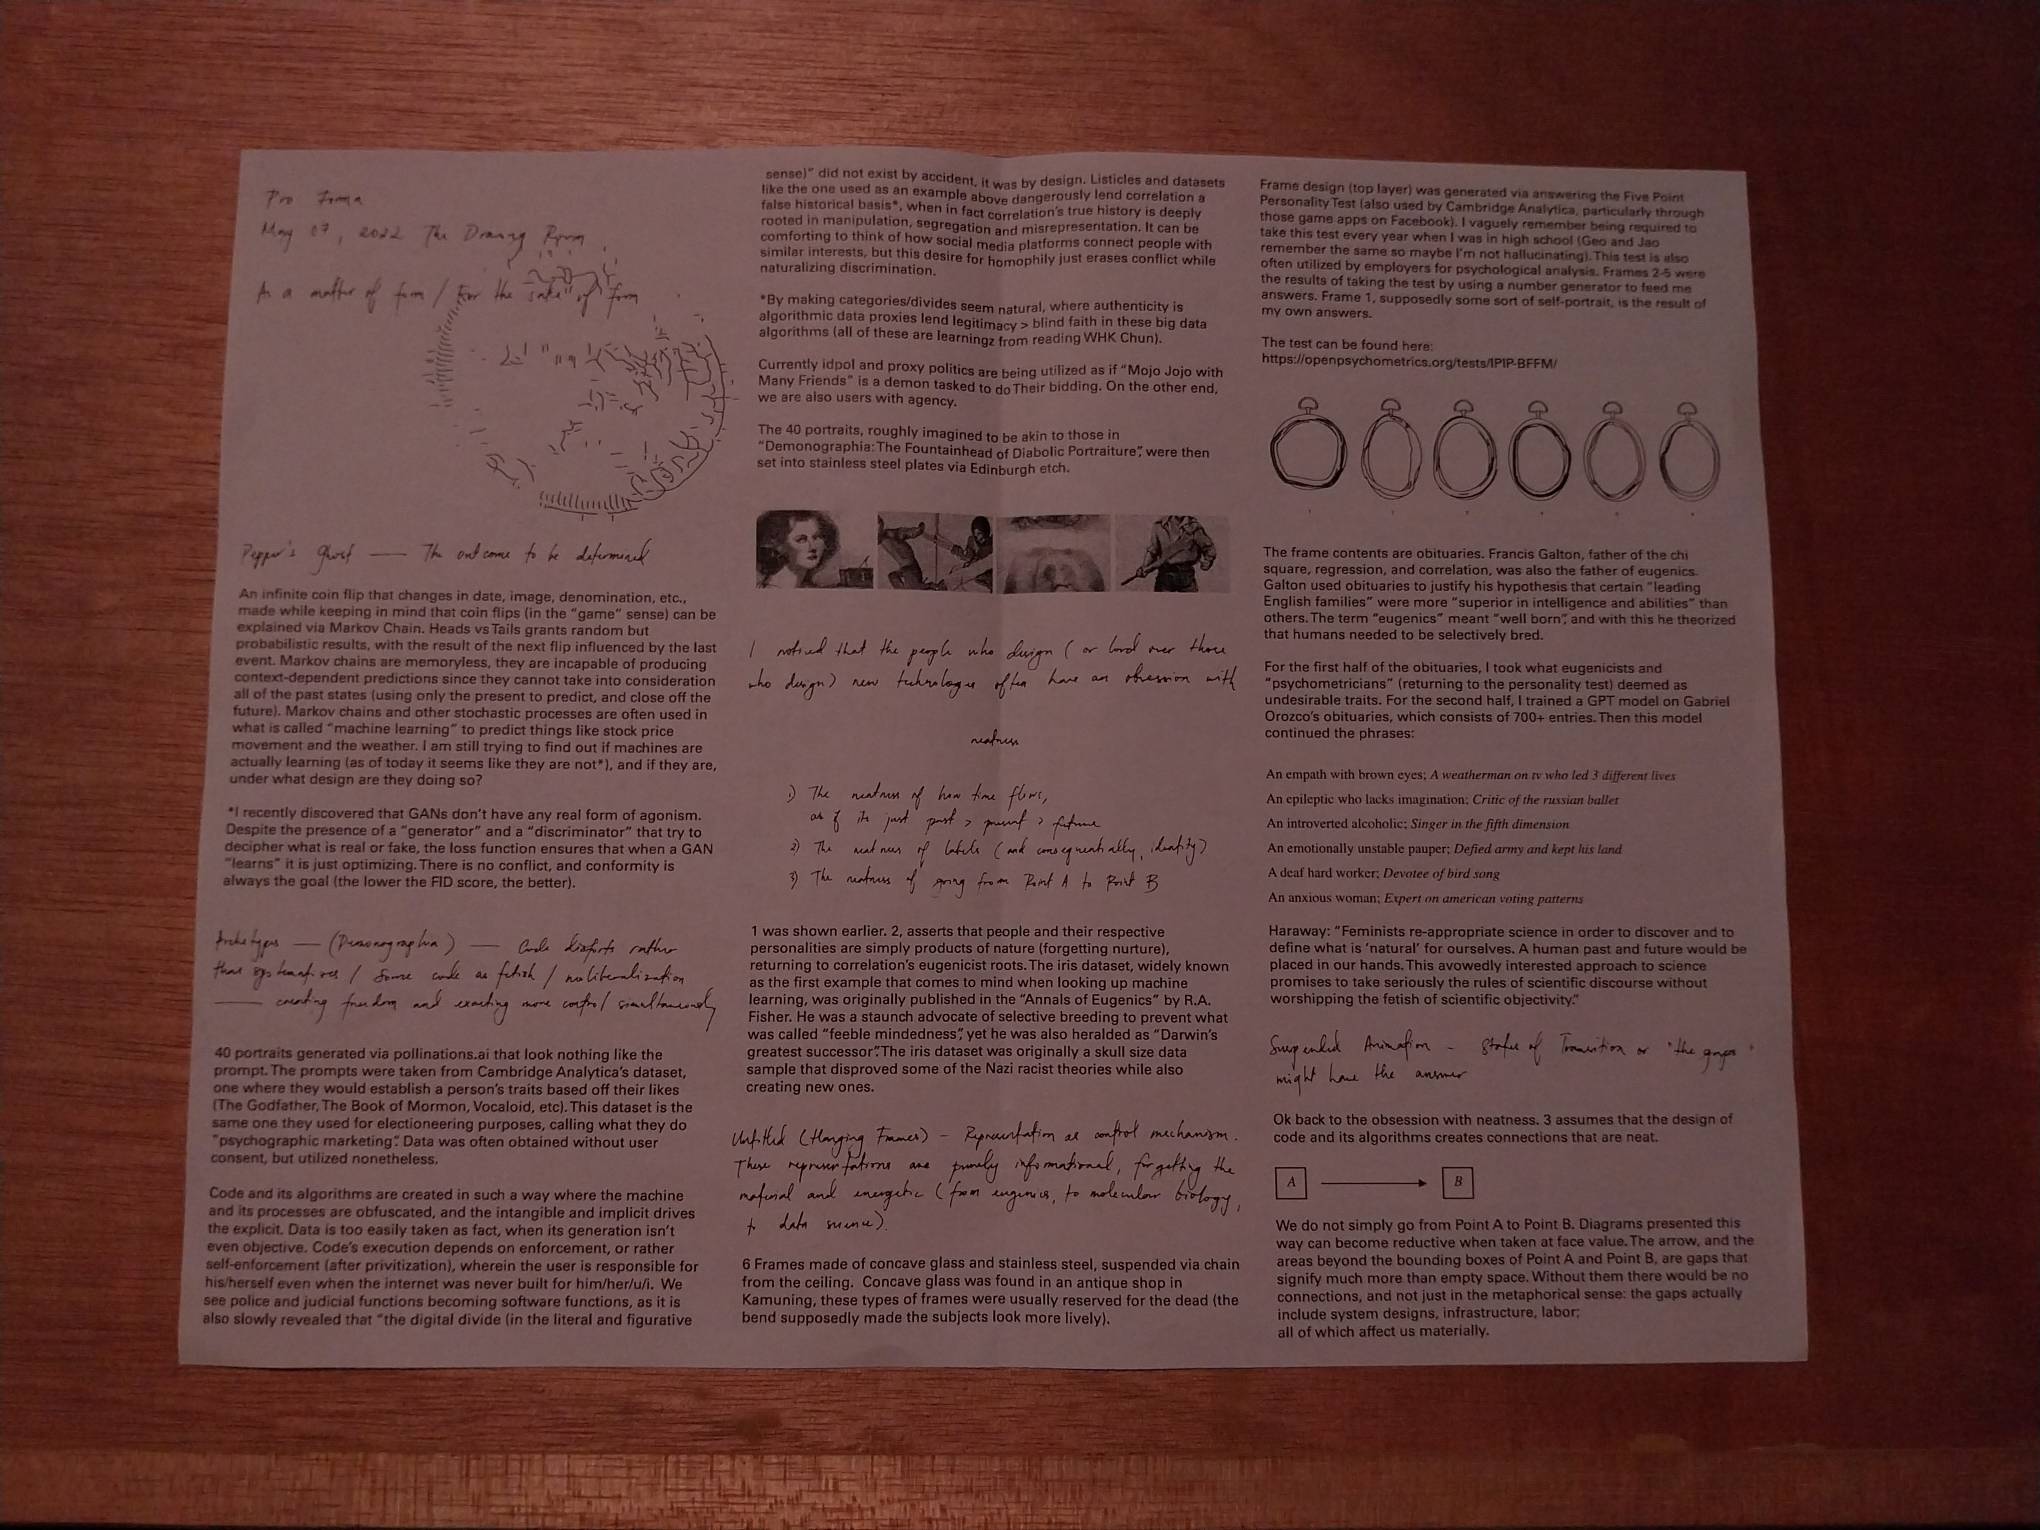 Pro Forma
May 07, 2022 The Drawing Room
As a matter of form / For the "sake" of form
Pepper's Ghost — The outcome to be determined
An infinite coin flip that changes in date, image, denomination, etc.,
made while keeping in mind that coin flips (in the "game" sense) can be
explained via Markov Chain. Heads vs Tails grants random but
probabilistic results, with the result of the next flip influenced by the last
event. Markov chains are memoryless, they are incapable of producing
context-dependent predictions since they cannot take into consideration
all of the past states (using only the present to predict, and close off the
future). Markov chains and other stochastic processes are often used in
what is called "machine learning" to predict things like stock price
movement and the weather. I am still trying to find out if machines are
actually learning (as of today it seems like they are not*), and if they are,
under what design are they doing so?
*I recently discovered that GANs don't have any real form of agonism.
Despite the presence of a "generator" and a "discriminator" that try to
decipher what is real or fake, the loss function ensures that when a GAN
"learns" it is just optimizing. There is no conflict, and conformity is
always the goal (the lower the FID score, the better).
Archetypes — (Demonographia) — Code distorts rather
than systematizes / Some code as fetish / neoliberalization
— creating freedom and exacting more control simultaneously
40 portraits generated via pollinations.ai that look nothing like the
prompt. The prompts were taken from Cambridge Analytica's dataset,
one where they would establish a person's traits based off their likes
(The Godfather, The Book of Mormon, Vocaloid, etc). This dataset is the
same one they used for electioneering purposes, calling what they do
"psychographic marketing". Data was often obtained without user
consent, but utilized nonetheless.
Code and its algorithms are created in such a way where the machine
and its processes are obfuscated, and the intangible and implicit drives
the explicit. Data is too easily taken as fact, when its generation isn't
even objective. Code's execution depends on enforcement, or rather
self-enforcement (after privitization), wherein the user is responsible for
his/herself even when the internet was never built for him/her/u/i. We
see police and judicial functions becoming software functions, as it is
also slowly revealed that "the digital divide (in the literal and figurative
sense)" did not exist by accident, it was by design. Listicles and datasets
like the one used as an example above dangerously lend correlation a
false historical basis*, when in fact correlation's true history is deeply
rooted in manipulation, segregation and misrepresentation. It can be
comforting to think of how social media platforms connect people with
similar interests, but this desire for homophily just erases conflict while
naturalizing discrimination.
*By making categories/divides seem natural, where authenticity is
algorithmic data proxies lend legitimacy > blind faith in these big data
algorithms (all of these are learningz from reading WHK Chun).
Currently idpol and proxy politics are being utilized as if "Mojo Jojo with
Many Friends" is a demon tasked to do Their bidding. On the other end,
we are also users with agency.
The 40 portraits, roughly imagined to be akin to those in
"Demonographia: The Fountainhead of Diabolic Portraiture", were then
set into stainless steel plates via Edinburgh etch.
I noticed that the people who design (or lord over those
who design) new technologies often have an obsession with
neatness
1) The neatness of how time flows,
as if its just past > present > future
2) The neatness of labels (and consequentially, identity)
3) The neatness of going from Point A to Point B
1 was shown earlier. 2, asserts that people and their respective
personalities are simply products of nature (forgetting nurture),
returning to correlation's eugenicist roots. The iris dataset, widely known
as the first example that comes to mind when looking up machine
learning, was originally published in the "Annals of Eugenics" by R.A.
Fisher. He was a staunch advocate of selective breeding to prevent what
was called "feeble mindedness", yet he was also heralded as "Darwin's
greatest successor". The iris dataset was originally a skull size data
sample that disproved some of the Nazi racist theories while also
creating new ones.
Untitled (Hanging Frames) – Representation as control mechanism.
These representations are purely informational, forgetting the
material and energetic (from eugenics, to molecular biology,
to data science).
6 Frames made of concave glass and stainless steel, suspended via chain
from the ceiling. Concave glass was found in an antique shop in
Kamuning, these types of frames were usually reserved for the dead (the
bend supposedly made the subjects look more lively).
Frame design (top layer) was generated via answering the Five Point
Personality Test (also used by Cambridge Analytica, particularly through
those game apps on Facebook). I vaguely remember being required to
take this test every year when I was in high school (Geo and Jao
remember the same so maybe I'm not hallucinating). This test is also
often utilized by employers for psychological analysis. Frames 2-5 were
the results of taking the test by using a number generator to feed me
answers. Frame 1, supposedly some sort of self-portrait, is the result of
my own answers.
The test can be found here:
https://openpsychometrics.org/tests/IPIP-BFFM/
The frame contents are obituaries. Francis Galton, father of the chi
square, regression, and correlation, was also the father of eugenics.
Galton used obituaries to justify his hypothesis that certain "leading
English families" were more "superior in intelligence and abilities" than
others. The term "eugenics" meant "well born", and with this he theorized
that humans needed to be selectively bred.
For the first half of the obituaries, I took what eugenicists and
"psychometricians" (returning to the personality test) deemed as
undesirable traits. For the second half, I trained a GPT model on Gabriel
Orozco's obituaries, which consists of 700+ entries. Then this model
continued the phrases:
An empath with brown eyes; A weatherman on tv who led 3 different lives
An epileptic who lacks imagination; Critic of the russian ballet
An introverted alcoholic; Singer in the fifth dimension
An emotionally unstable pauper; Defied army and kept his land
A deaf hard worker; Devotee of bird song
An anxious woman; Expert on american voting patterns
Haraway: "Feminists re-appropriate science in order to discover and to
define what is 'natural' for ourselves. A human past and future would be
placed in our hands. This avowedly interested approach to science
promises to take seriously the rules of scientific discourse without
worshipping the fetish of scientific objectivity."
Suspended Animation – States of Transition or "the gaps"
might have the answer
Ok back to the obsession with neatness. 3 assumes that the design of
code and its algorithms creates connections that are neat.
A B
We do not simply go from Point A to Point B. Diagrams presented this
way can become reductive when taken at face value. The arrow, and the
areas beyond the bounding boxes of Point A and Point B, are gaps that
signify much more than empty space. Without them there would be no
connections, and not just in the metaphorical sense: the gaps actually
include system designs, infrastructure, labor;
all of which affect us materially.